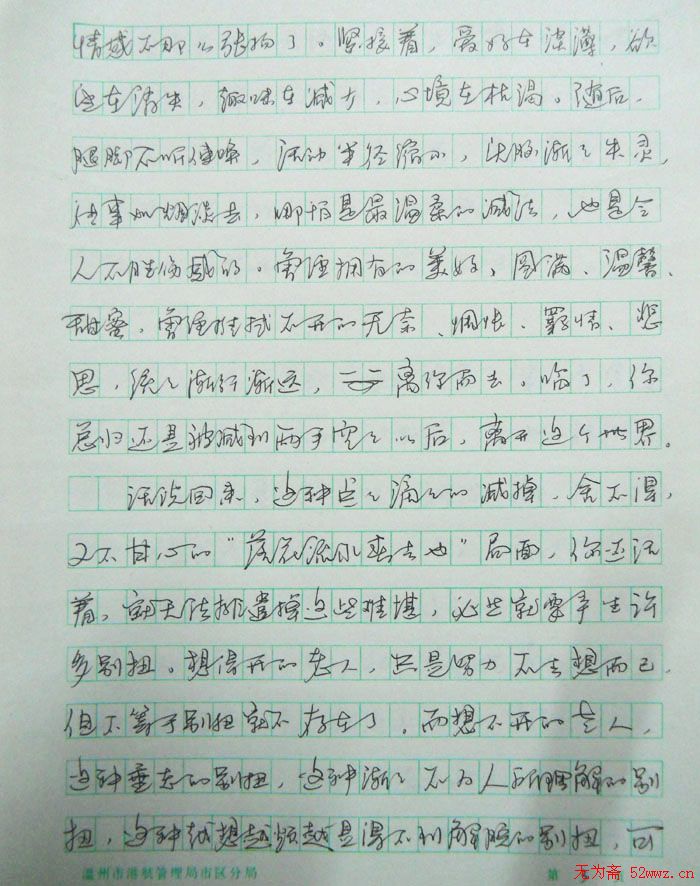 情感不那么张扬了。紧接着，爱好在淡薄，欲
望在消失，趣味在减少，心境在枯竭。随后，
腿脚不听使唤，活动半径缩小，头脑渐渐失灵，
往事如烟淡去，哪怕是最温柔的减法，也是令
人不胜伤感的。曾经拥有的美好、圆满、温馨、
甜蜜，曾经挂拭不开的无奈、惆怅、羁情、悲
思，统统渐行渐远，离你而去。临了，你
总归还是被减到两手空空以后，离开这个世界。
话说回来，这种点点滴滴的减掉，舍不得，
又不甘心的“落花流水春去也”局面，你还活
着，就无法排遣掉这些难堪，必然就要产生许
多别扭。想得开的老人，只是努力不去想而已，
但不等于别扭就不存在了。而想不开的老人，
这种垂老的别扭，这种渐渐不为人所理解的别
扭，这种越想越烦越是得不到解脱的别扭，可
温州市港航管理局市区分局 第
无为斋 52wwz.cn